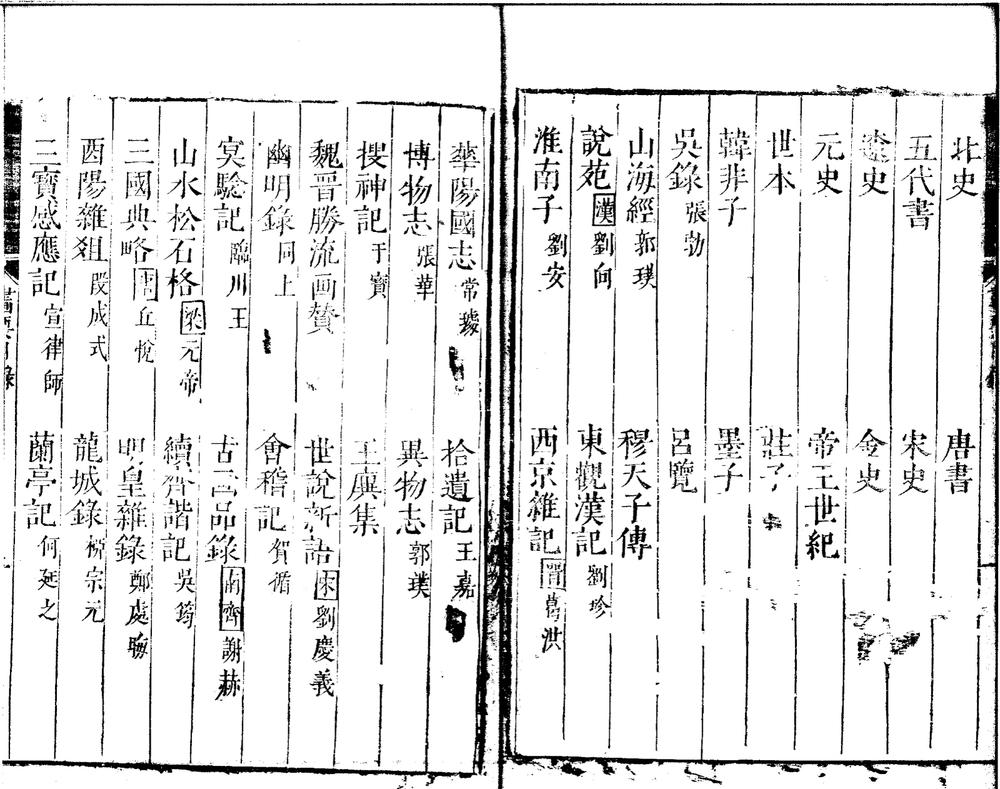 北史 唐書
五代書 宋史
遼史 金史
元史 帝王世紀
世本 莊子
韓非子 墨子
吳錄 張勃 呂覽
山海經 郭璞 穆天子傳
說苑 漢 劉向 東觀漢記 劉珍
淮南子 劉安 西京雜記 晉 葛洪
華陽國志 常璩 拾遺記 王嘉
博物志 張華 異物志 郭璞
搜神記 于寶 王廙集
魏晉勝流画贊 世說新語 宋 劉慶義
幽明錄 同上 會稽記 賀循
冥驗記 臨川王 古画品錄 南齊 謝赫
山水松石格 梁 元帝 續齊諧記 吳筠
三國典略 丘悅 明皇雜錄 鄭處晦
酉陽雜俎 段成式 龍城錄 柳宗元
三寶感應記 宣律師 蘭亭記 何延之